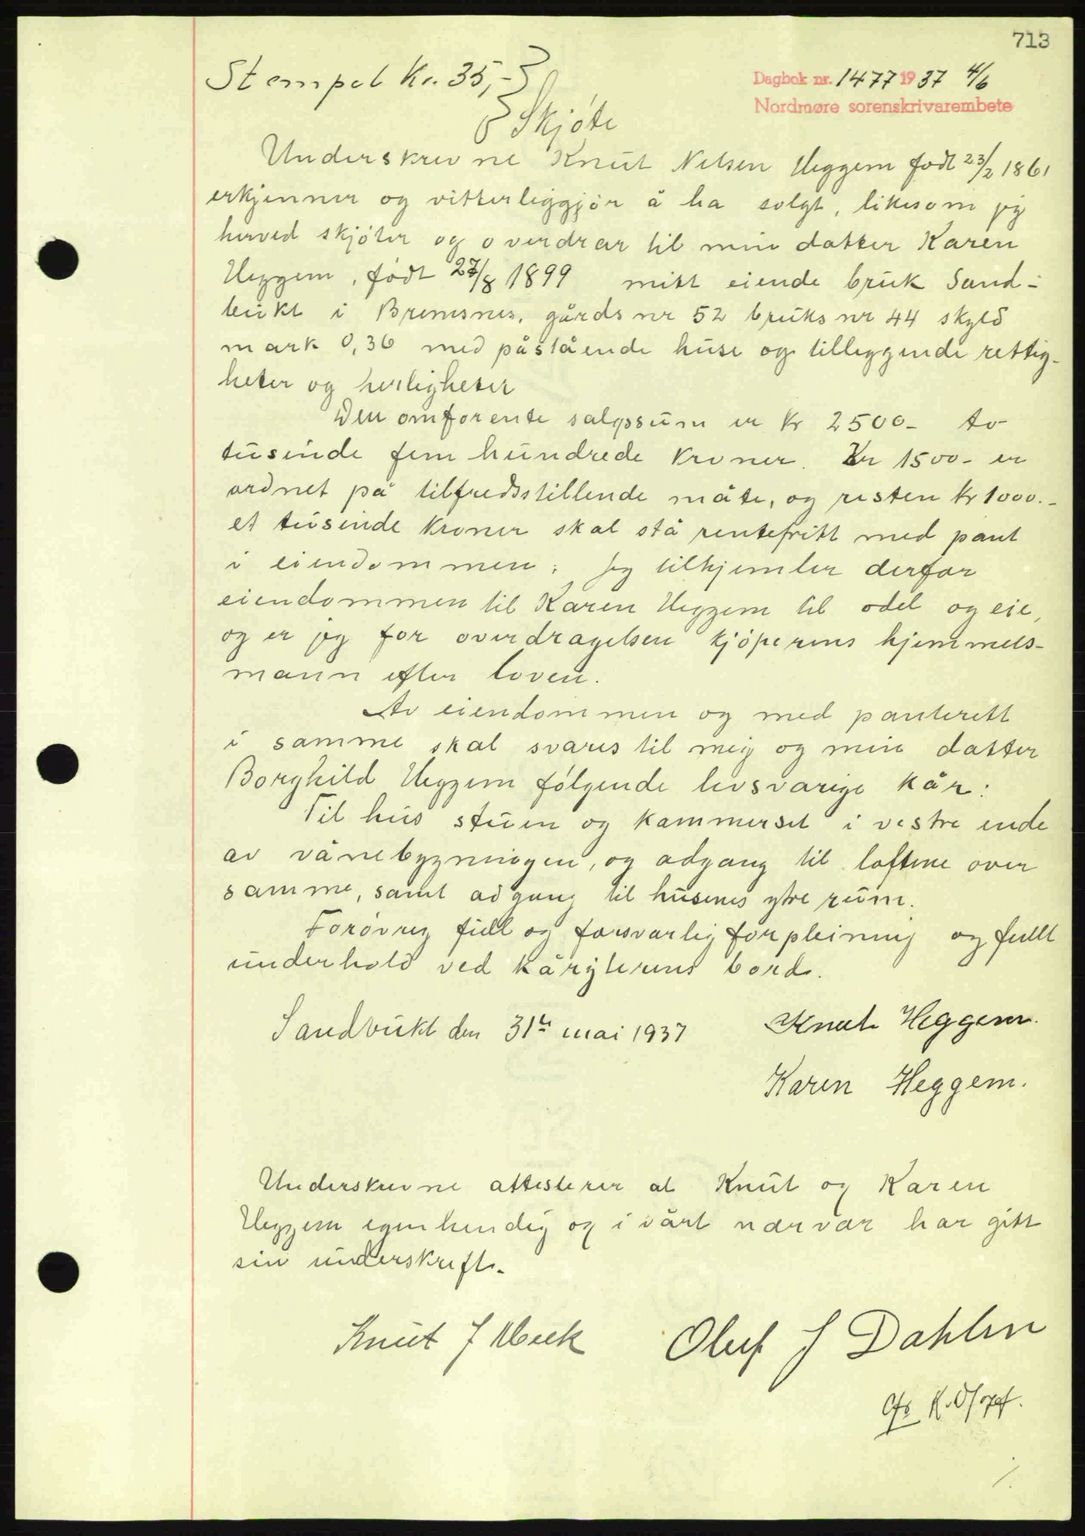 713
Stempel Kr. 35,-
Dagbok nr. 1477 1937 4/6
Nordmøre sorenskrivarembete
Skjøte
Underskrevne Knut Nelsen Heggem født 23/2 1861
erkjenner og vitterliggjør å ha solgt, likesom jeg
herved skjøter og overdrar til min datter Karen
Heggem, født 27/8 1899 mitt eiende bruk Sand-
bukt i Bremsnes, gårds nr 52 bruks nr 44 skyld
mark 0,36 med påstående huse og tilleggende rettig-
heter og herligheter
Den omforente salgssum er Kr 2500- to
tusinde fem hundrede Kroner. Kr 1500- er
ordnet på tilfredsstillende måte, og resten Kr 1000.-
et tusinde Kroner skal stå rentefritt med pant
i eiendommen. Jeg tilhjemler derfor
eiendommen til Karen Heggem til odel og eie,
og er jeg for overdragelsen kjøperens hjemmels-
mann efter loven.
Av eiendommen og med panterett
i samme skal svares til mig og min datter
Borghild Heggem følgende livsvarige kår:
Til hus stuen og kammerset i vestre ende
av vånebygningen, og adgang til loftene over
samme, samt adgang til husenes ytre rum.
Forøvrig full og forsvarlig forpleining og fullt
underhold ved kårgiverens bord.
Sandbukt den 31te mai 1937
Knut Heggem.
Karen Heggem.
Underskrevne attesterer at Knut og Karen
Heggem egenhendig og i vårt nærvær har gitt
sin underskrift.
Knut J
Oluf J Dahlen